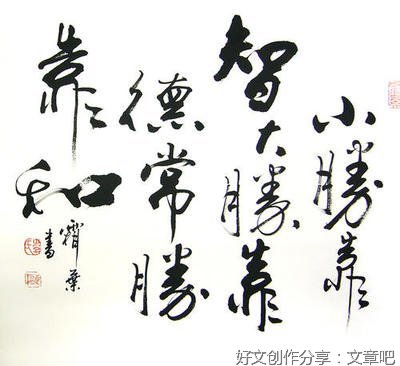 小勝靠
智大勝靠
德常勝
靠和
霜葉
書
好文创作分享：文章吧